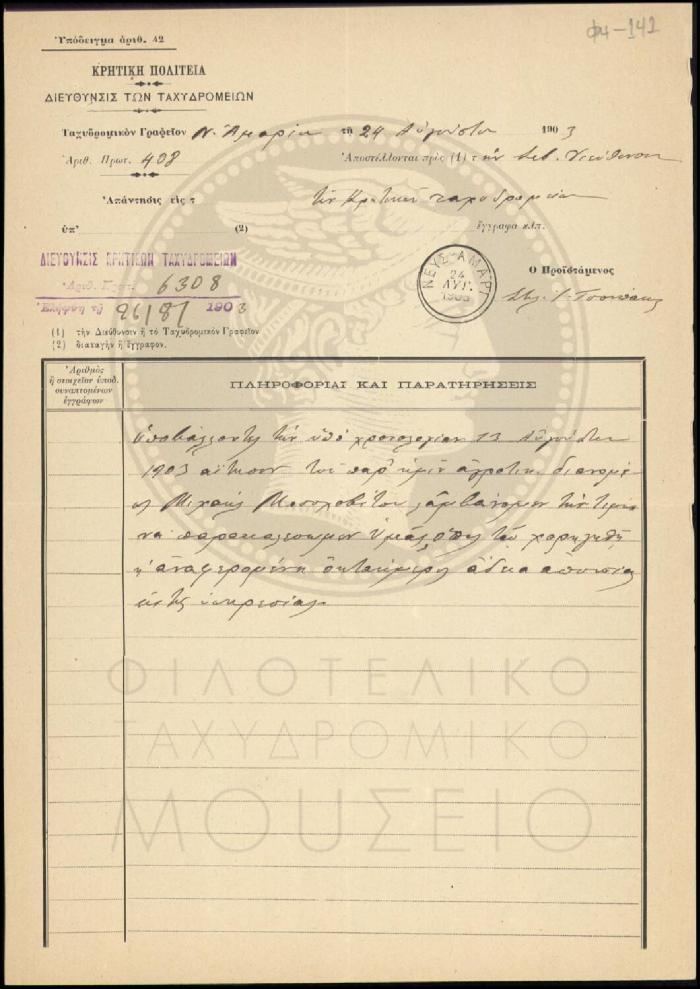 Φ4-142
Ὑπόδειγμα ἀριθ. 42
ΚΡΗΤΙΚΗ ΠΟΛΙΤΕΙΑ
ΔΙΕΥΘΥΝΣΙΣ ΤΩΝ ΤΑΧΥΔΡΟΜΕΙΩΝ
Ταχυδρομικὸν Γραφεῖον Ν. Ἀμαρίου τῇ 24 Αὐγούστου 1903
Ἀριθ. Πρωτ. 408 Ἀποστέλλονται πρὸς (1) τὴν Σεβ. Διεύθυνσιν
Ἀπάντησις εἰς τ τῶν Κρητικῶν ταχυδρομείων
ὑπ' (2) ἔγγραφα κλπ.
ΔΙΕΥΘΥΝΣΙΣ ΚΡΗΤΙΚΩΝ ΤΑΧΥΔΡΟΜΕΙΩΝ
Ἀριθ. Πρωτ. 6308
Ἐλήφθη τῇ 26/8/ 1903
ΝΕΥΣ-ΑΜΑΡΙ
24
ΑΥΓ.
1903
Ὁ Προϊστάμενος
(1) τὴν Διεύθυνσιν ἢ τὸ Ταχυδρομικὸν Γραφεῖον
(2) διαταγὴν ἢ ἔγγραφον.
Ἀριθμὸς
ἢ στοιχεῖον ὑποδ.
συναπτομένων
ἐγγράφων
ΠΛΗΡΟΦΟΡΙΑΙ ΚΑΙ ΠΑΡΑΤΗΡΗΣΕΙΣ
Ὑποβάλλοντες τὴν ὑπὸ χρονολογίαν 23 Αὐγούστου
1903 αἴτησιν τοῦ παρ' ἡμῖν ἀγροτικ. διανομέ-
ως Μιχαὴλ λαμβάνομεν τὴν τιμὴν
νὰ παρακαλέσωμεν Ὑμᾶς, ὅπως τῷ χορηγηθῇ
ἡ ἀναφερομένη ὀκταήμερος ἄδεια ἀπουσίας
ἐκ τῆς ὑπηρεσίας.
ΦΙΛΟΤΕΛΙΚΟ
ΤΑΧΥΔΡΟΜΙΚΟ
ΜΟΥΣΕΙΟ